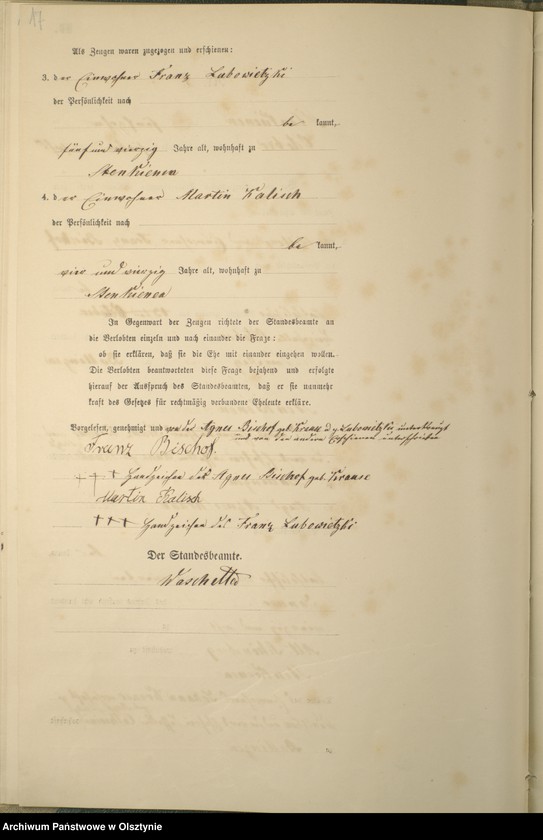 17
Als Zeugen waren zugezogen und erschienen:
3. der Einwohner Franz Lubowietzki
der Persönlichkeit nach
be kannt,
fünf und vierzig Jahre alt, wohnhaft zu
Stenkienen
4. der Einwohner Martin Kalisch
der Persönlichkeit nach
be kannt,
vier und vierzig Jahre alt, wohnhaft zu
Stenkienen
In Gegenwart der Zeugen richtete der Standesbeamte an
die Verlobten einzeln und nach einander die Frage:
ob sie erklären, daß sie die Ehe mit einander eingehen wollen.
Die Verlobten beantworteten diese Frage bejahend und erfolgte
hierauf der Ausspruch des Standesbeamten, daß er sie nunmehr
kraft des Gesetzes für rechtmäßig verbundene Eheleute erkläre.
Vorgelesen, genehmigt und von der Agnes Bischof geb. Krause u. p. Lubowietzki unterkreuzt
und von den andern Erschienenen unterschrieben
Franz Bischof.
+ + + Handzeichen der Agnes Bischof geb. Krause
Martin Kalisch
+++ Handzeichen des Franz Lubowietzki
Der Standesbeamte.
Archiwum Państwowe w Olsztynie